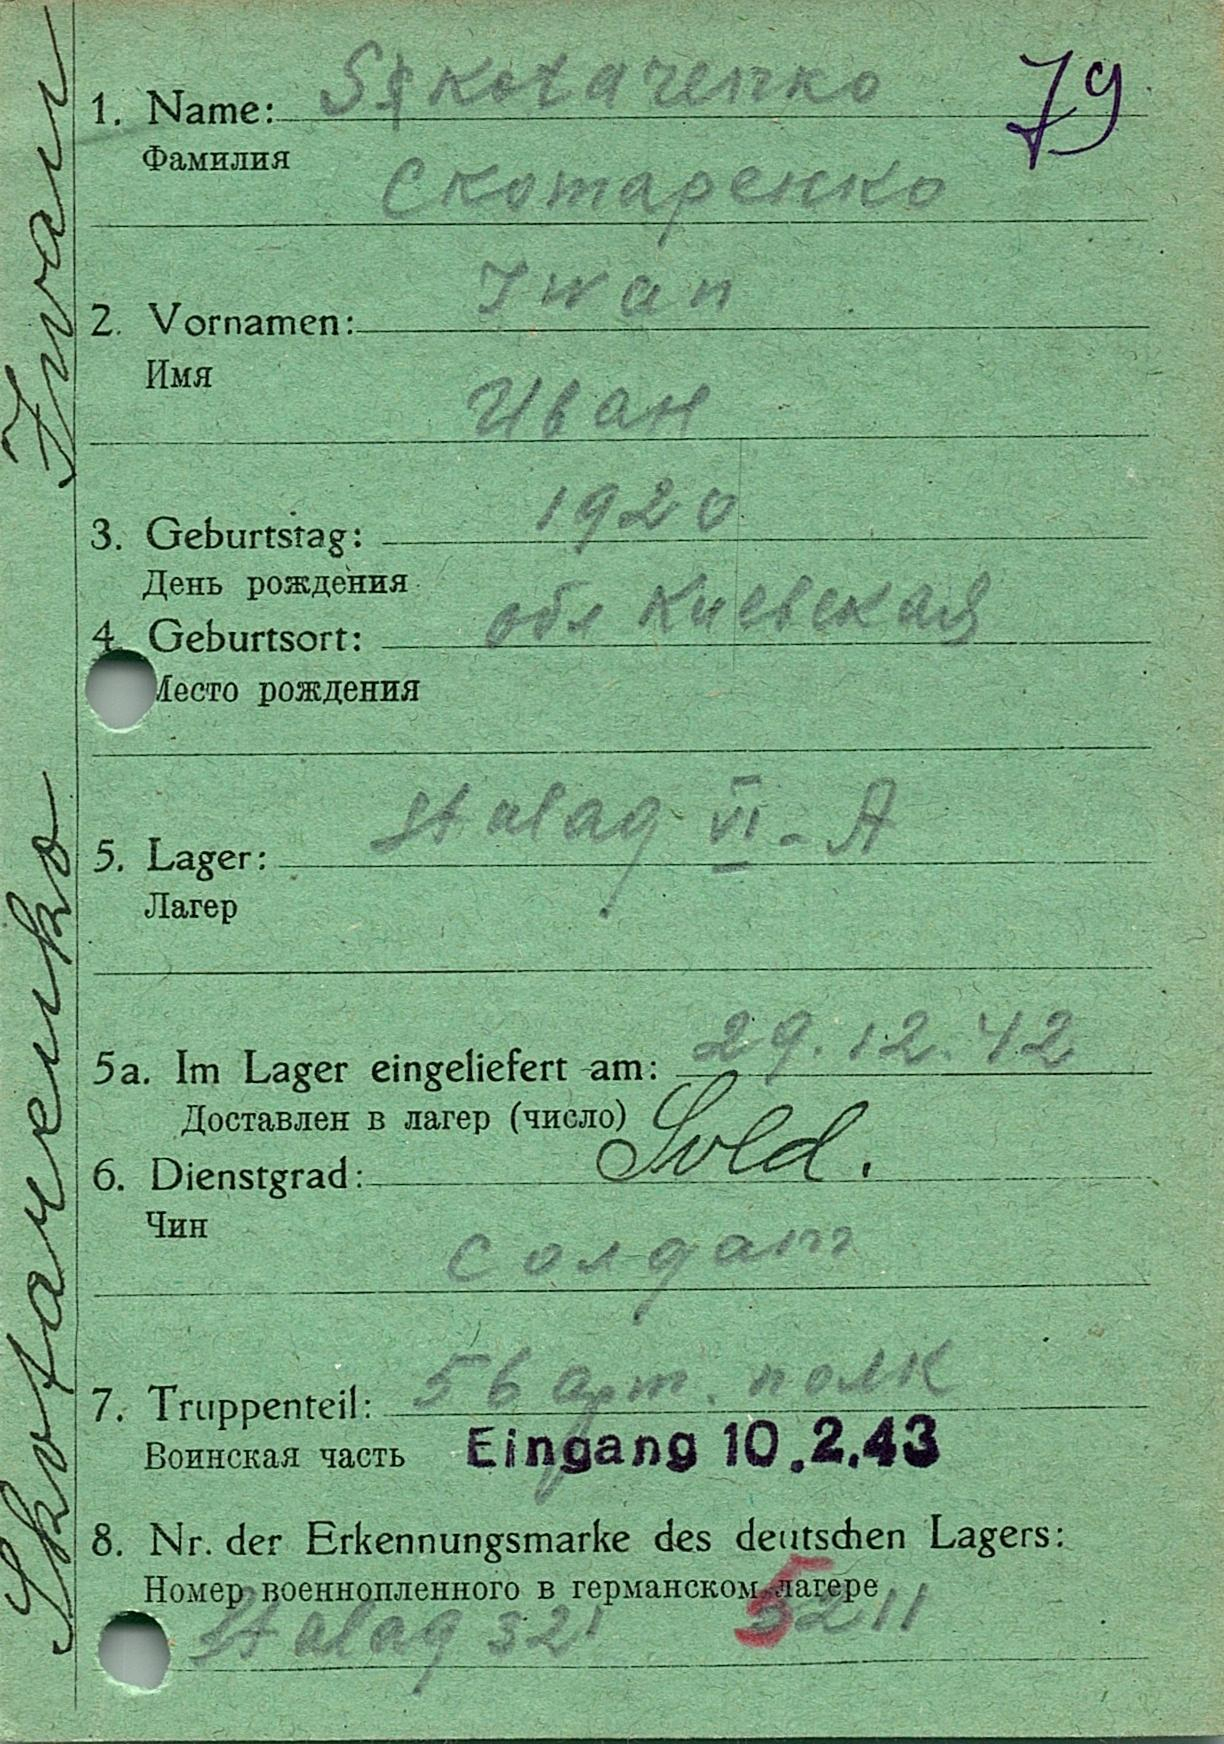 79
1. Name: Skotarenko
Фамилия
Скотаренко
2. Vornamen: Iwan
Имя
Иван
3. Geburtstag: 1920
День рождения
4. Geburtsort: обл Киевская
Место рождения
5. Lager: Stalag VI-A
Лагер
5a. Im Lager eingeliefert am: 29.12.42
Доставлен в лагер (число)
6. Dienstgrad: Sold.
Чин
солдат
7. Truppenteil: 56 арт. полк
Воинская часть Eingang 10.2.43
8. Nr. der Erkennungsmarke des deutschen Lagers:
Номер военнопленного в германском лагере
Stalag 321 5211
Skotarenko Iwan